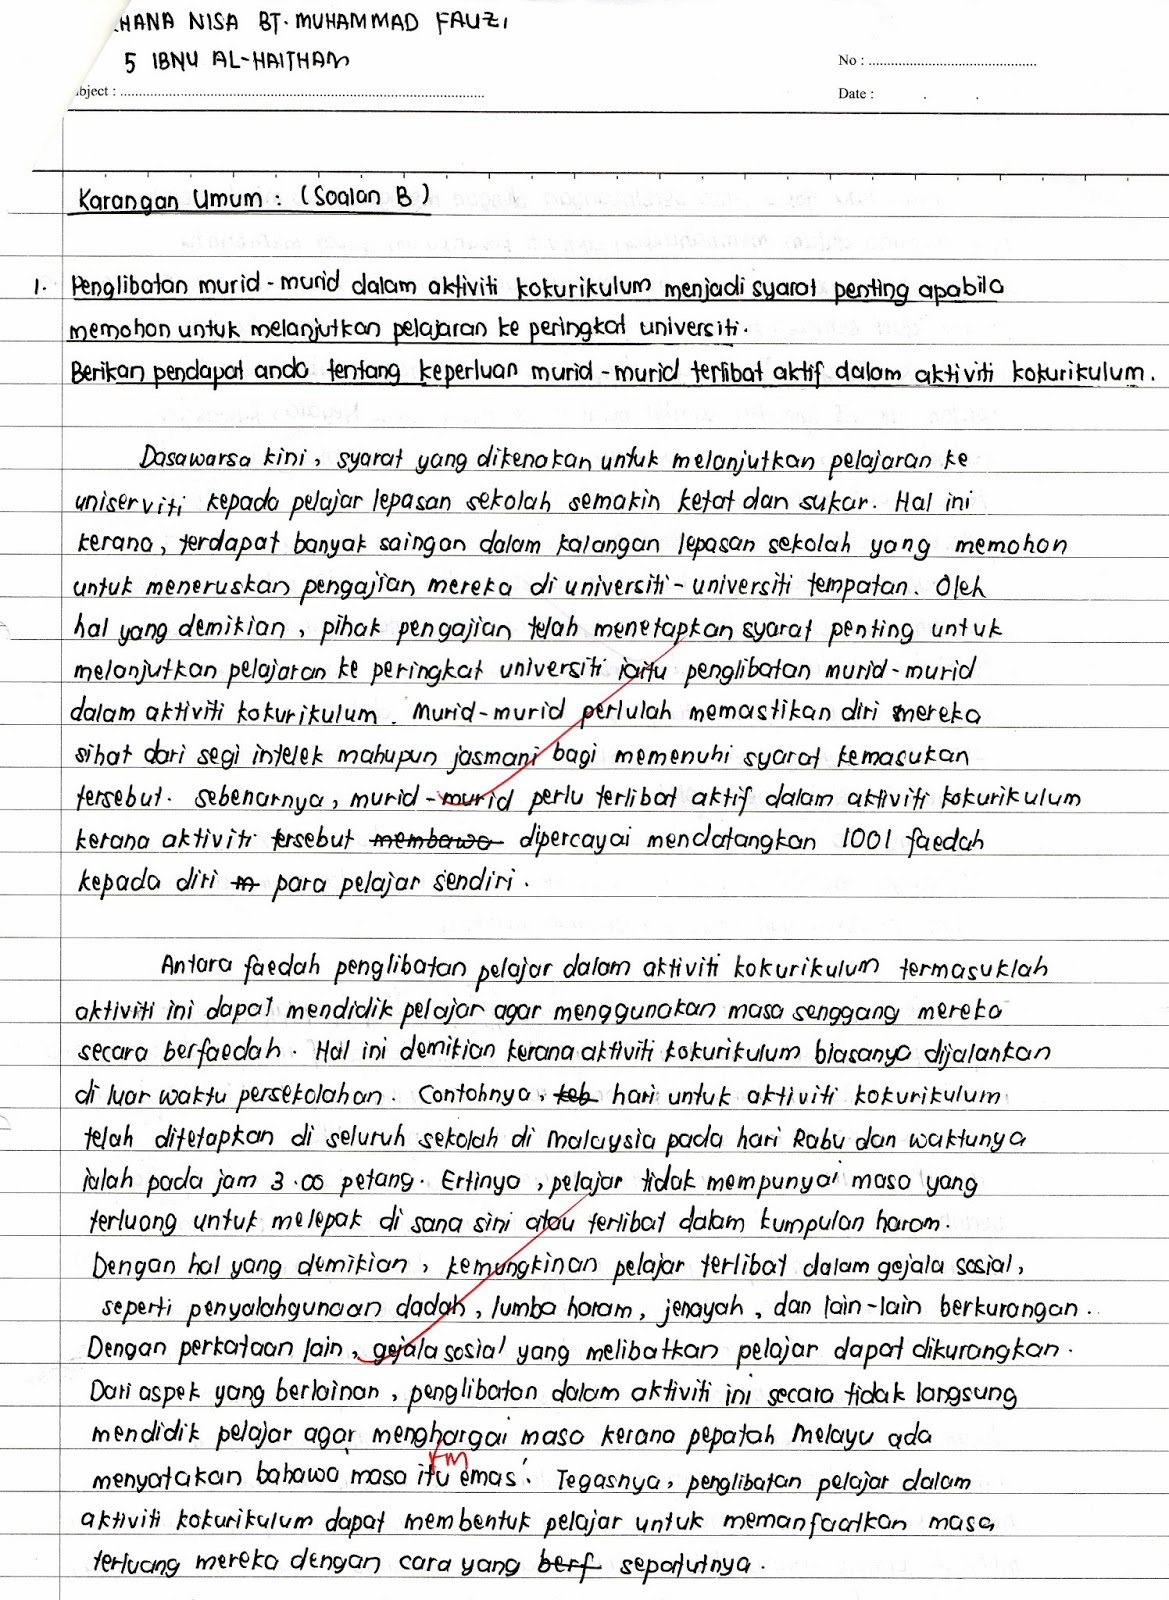 HANA NISA BT. MUHAMMAD FAUZI
5 IBNU AL-HAITHAM
No :
bject :
Date :
Karangan Umum : (Soalan B)
1. Penglibatan murid-murid dalam aktiviti kokurikulum menjadi syarat penting apabila
memohon untuk melanjutkan pelajaran ke peringkat universiti.
Berikan pendapat anda tentang keperluan murid-murid terlibat aktif dalam aktiviti kokurikulum.
Dasawarsa kini, syarat yang dikenakan untuk melanjutkan pelajaran ke
uniserviti kepada pelajar lepasan sekolah semakin ketat dan sukar. Hal ini
kerana, terdapat banyak saingan dalam kalangan lepasan sekolah yang memohon
untuk meneruskan pengajian mereka di universiti-universiti tempatan. Oleh
hal yang demikian, pihak pengajian telah menetapkan syarat penting untuk
melanjutkan pelajaran ke peringkat universiti iaitu penglibatan murid-murid
dalam aktiviti kokurikulum. Murid-murid perlulah memastikan diri mereka
sihat dari segi intelek mahupun jasmani bagi memenuhi syarat kemasukan
tersebut. Sebenarnya, murid-murid perlu terlibat aktif dalam aktiviti kokurikulum
kerana aktiviti tersebut membawa dipercayai mendatangkan 1001 faedah
kepada diri m para pelajar sendiri.
Antara faedah penglibatan pelajar dalam aktiviti kokurikulum termasuklah
aktiviti ini dapat mendidik pelajar agar menggunakan masa senggang mereka
secara berfaedah. Hal ini demikian kerana aktiviti kokurikulum biasanya dijalankan
di luar waktu persekolahan. Contohnya, teb hari untuk aktiviti kokurikulum
telah ditetapkan di seluruh sekolah di Malaysia pada hari Rabu dan waktunya
ialah pada jam 3.00 petang. Ertinya, pelajar tidak mempunyai masa yang
terluang untuk melepak di sana sini atau terlibat dalam kumpulan haram.
Dengan hal yang demikian, kemungkinan pelajar terlibat dalam gejala sosial,
seperti penyalahgunaan dadah, lumba haram, jenayah, dan lain-lain berkurangan.
Dengan perkataan lain, gejala sosial yang melibatkan pelajar dapat dikurangkan.
Dari aspek yang berlainan, penglibatan dalam aktiviti ini secara tidak langsung
mendidik pelajar agar menghargai masa kerana pepatah Melayu ada
menyatakan bahawa masa itu emas'. Tegasnya, penglibatan pelajar dalam
aktiviti kokurikulum dapat membentuk pelajar untuk memanfaatkan masa
terluang mereka dengan cara yang berf sepatutnya.